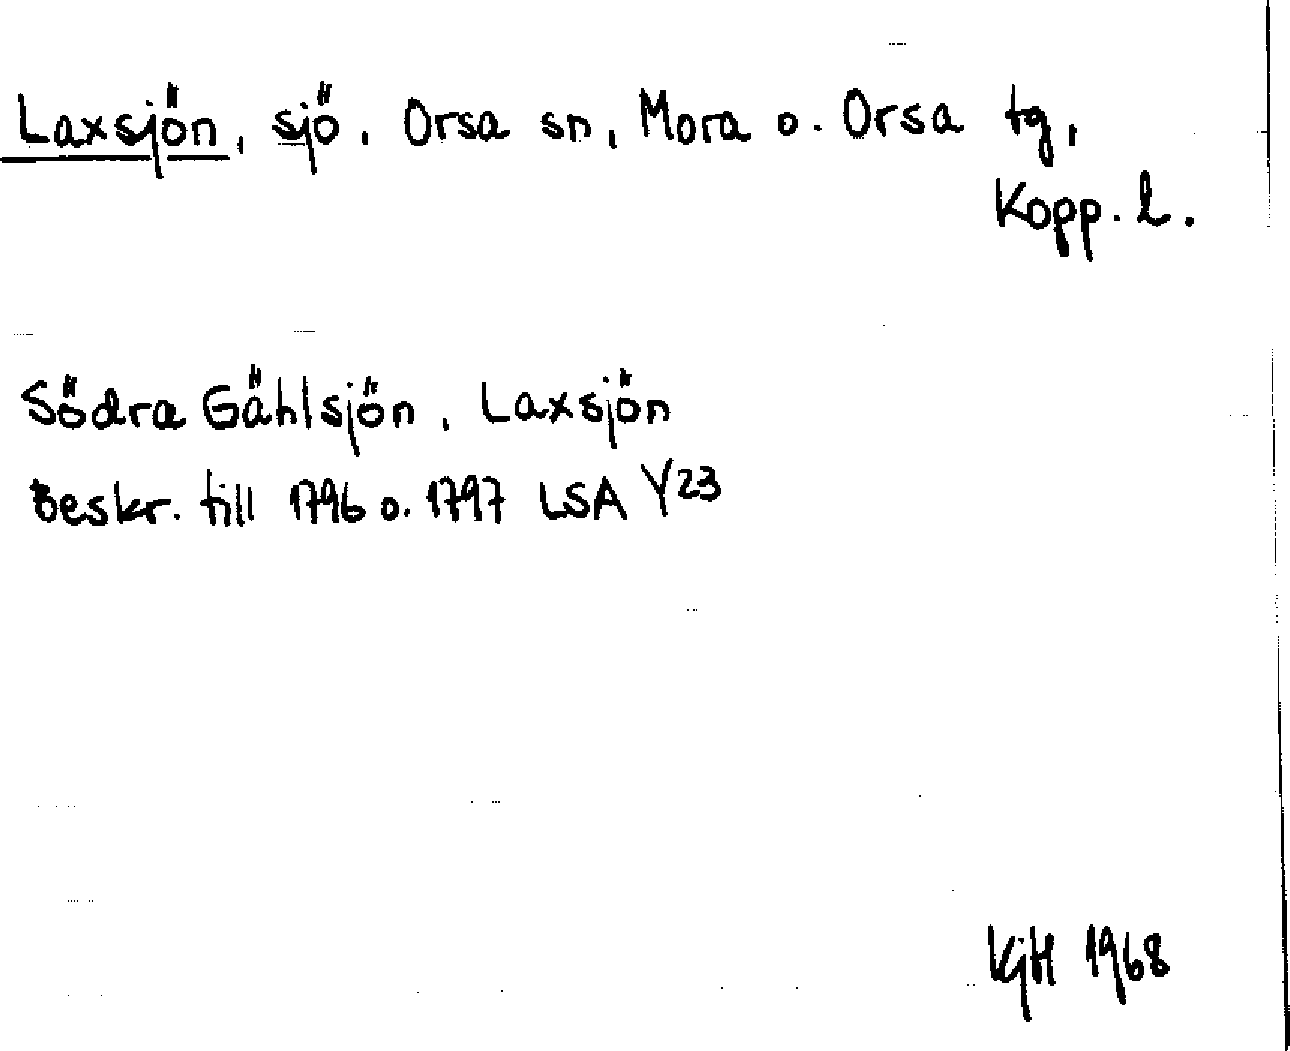 Laxsjön, sjö, Orsa sn, Mora o. Orsa tg,
Kopp. l.
Södra Gählsjön, Laxsjön
Beskr. till 1796 o. 1797 LSA Y23
KGH 1968